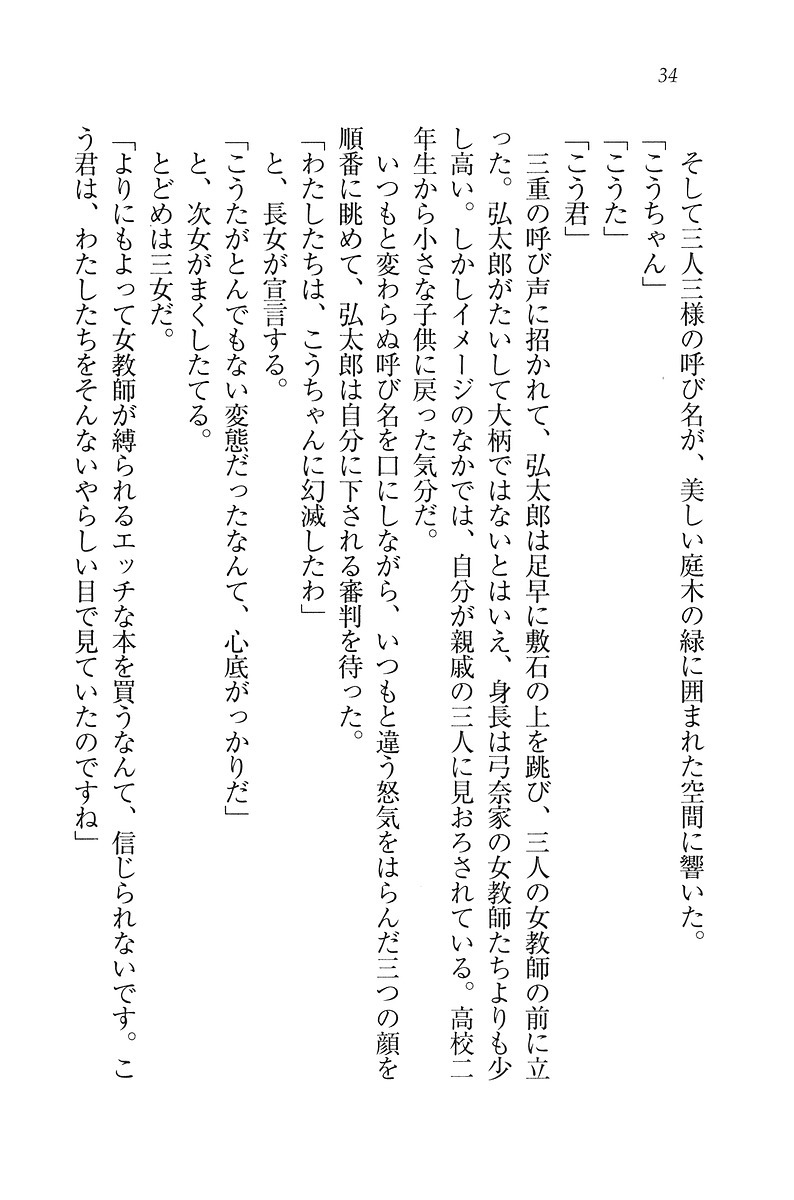 34
そして三人三様の呼び名が、美しい庭木の緑に囲まれた空間に響いた。
「こうちゃん」
「こうた」
「こう君」
三重の呼び声に招かれて、弘太郎は足早に敷石の上を跳び、三人の女教師の前に立
った。弘太郎がたいして大柄ではないとはいえ、身長は弓奈家の女教師たちよりも少
し高い。しかしイメージのなかでは、自分が親戚の三人に見おろされている。高校二
年生から小さな子供に戻った気分だ。
いつもと変わらぬ呼び名を口にしながら、いつもと違う怒気をはらんだ三つの顔を
順番に眺めて、弘太郎は自分に下される審判を待った。
「わたしたちは、こうちゃんに幻滅したわ」
と、長女が宣言する。
「こうたがとんでもない変態だったなんて、心底がっかりだ」
と、次女がまくしたてる。
とどめは三女だ。
「よりにもよって女教師が縛られるエッチな本を買うなんて、信じられないです。こ
う君は、わたしたちをそんないやらしい目で見ていたのですね」